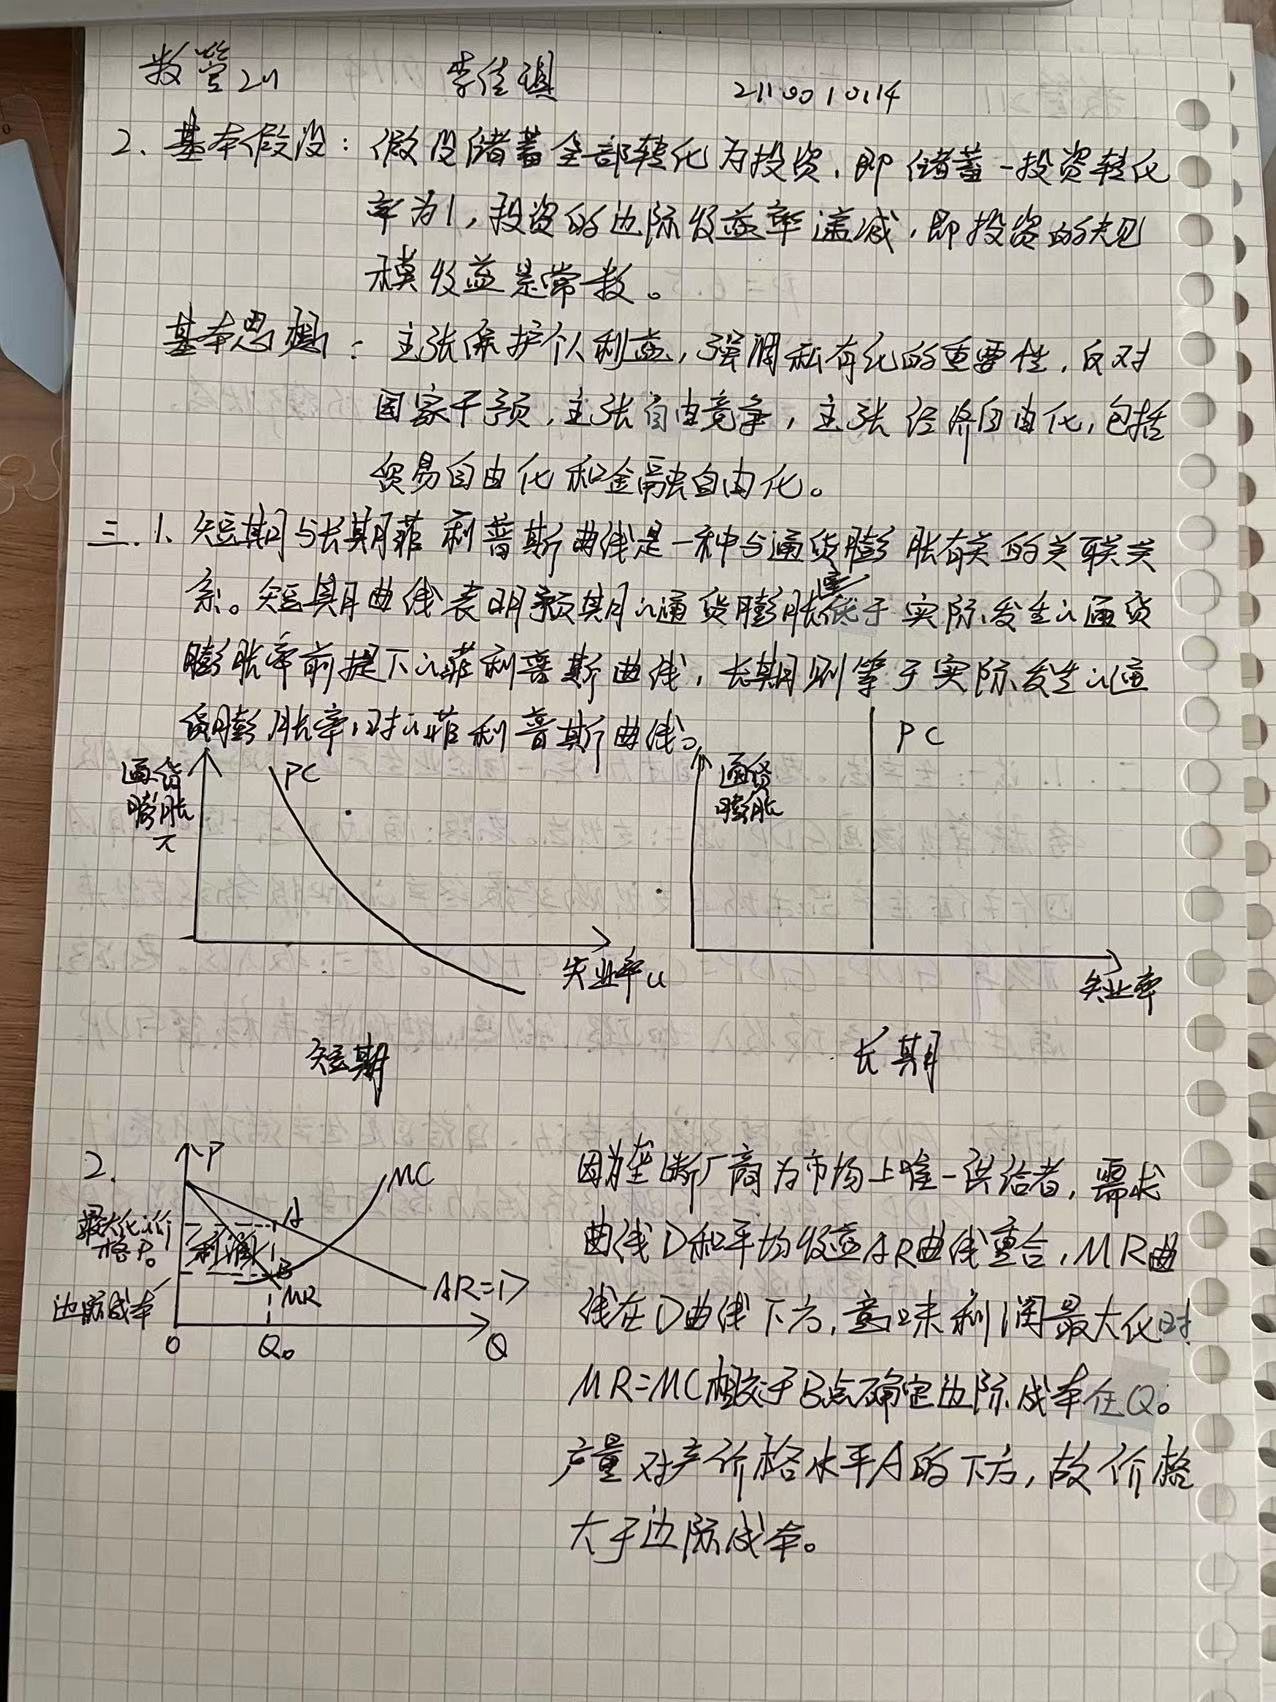 数管211 李佳琪 2110010114
2、基本假设：假设储蓄全部转化为投资，即储蓄－投资转化
率为1，投资的边际收益率递减，即投资的规
模收益是常数。
基本思想：主张保护个人利益，强调私有化的重要性，反对
国家干预，主张自由竞争，主张经济自由化，包括
贸易自由化和金融自由化。
三.1、短期与长期菲利普斯曲线是一种与通货膨胀有关的关联关
系。短期曲线表明预期的通货膨胀率低于实际发生的通货
膨胀率前提下的菲利普斯曲线，长期则等于实际发生的通
货膨胀率时的菲利普斯曲线。
通货
膨胀
π
PC
失业率u
短期
通货
膨胀
PC
失业率
长期
2.
P
MC
A
最大化的价
格P0
利润
B
边际成本
MR
AR=D
0
Q0
Q
因为垄断厂商为市场上唯一供给者，需求
曲线D和平均收益AR曲线重合，MR曲
线在D曲线下方，意味利润最大化时
MR=MC相交于B点确定边际成本在Q0
产量对产价格水平A的下方，故价格
大于边际成本。